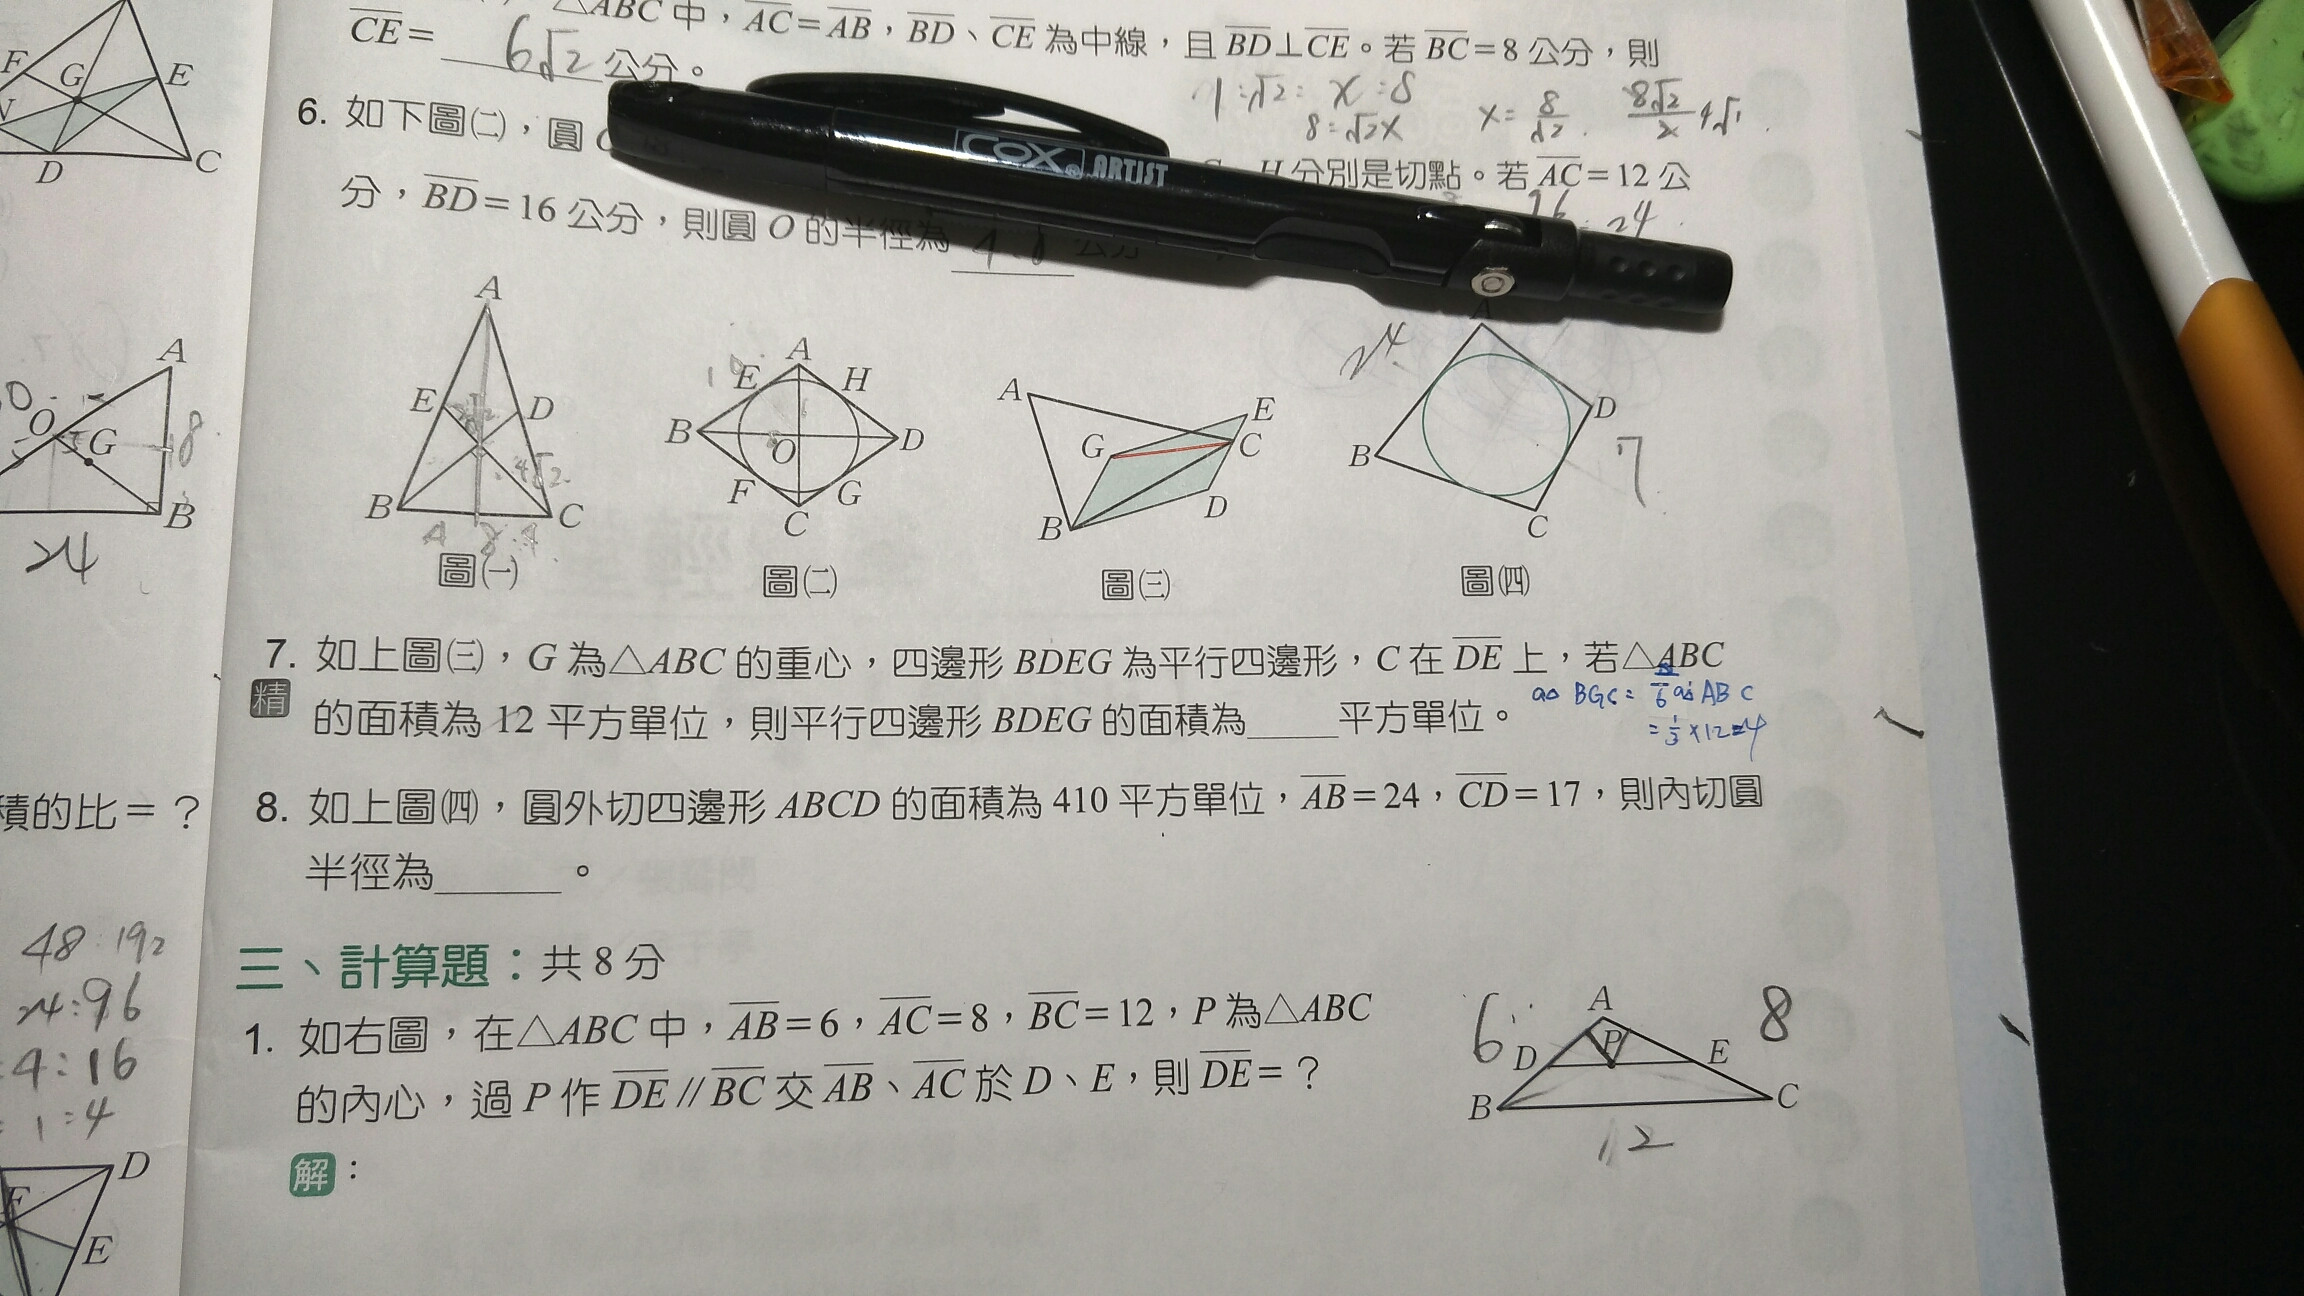 △ABC 中，AC=AB，BD、CE 為中線，且 BD⊥CE。若 BC=8 公分，則
CE= 6√2 公分。
1:√2= x:8
8=√2x
x=8/√2
8√2/2
6. 如下圖㈡，圓
H 分別是切點。若 AC=12 公
分，BD=16 公分，則圓 O 的半徑為 4.8 公分
24
COX® ARTIST
F G E
D C
A
O G
8
B
24
A
E D
B C
4√2
圖㈠
A
E H
B O D
F G
C
圖㈡
A
E
G C
D
B
圖㈢
24
A
D
B
7
C
圖㈣
7. 如上圖㈢，G 為△ABC 的重心，四邊形 BDEG 為平行四邊形，C 在 DE 上，若△ABC
精
的面積為 12 平方單位，則平行四邊形 BDEG 的面積為____平方單位。
a△ BGC=
a△ ABC
=1/3×12=4
積的比=？
8. 如上圖㈣，圓外切四邊形 ABCD 的面積為 410 平方單位，AB=24，CD=17，則內切圓
半徑為______。
48:192
24:96
=4:16
=1:4
D
F
E
三、計算題：共 8 分
1. 如右圖，在△ABC 中，AB=6，AC=8，BC=12，P 為△ABC
的內心，過 P 作 DE // BC 交 AB、AC 於 D、E，則 DE=？
解：
6 A 8
D P E
B C
12